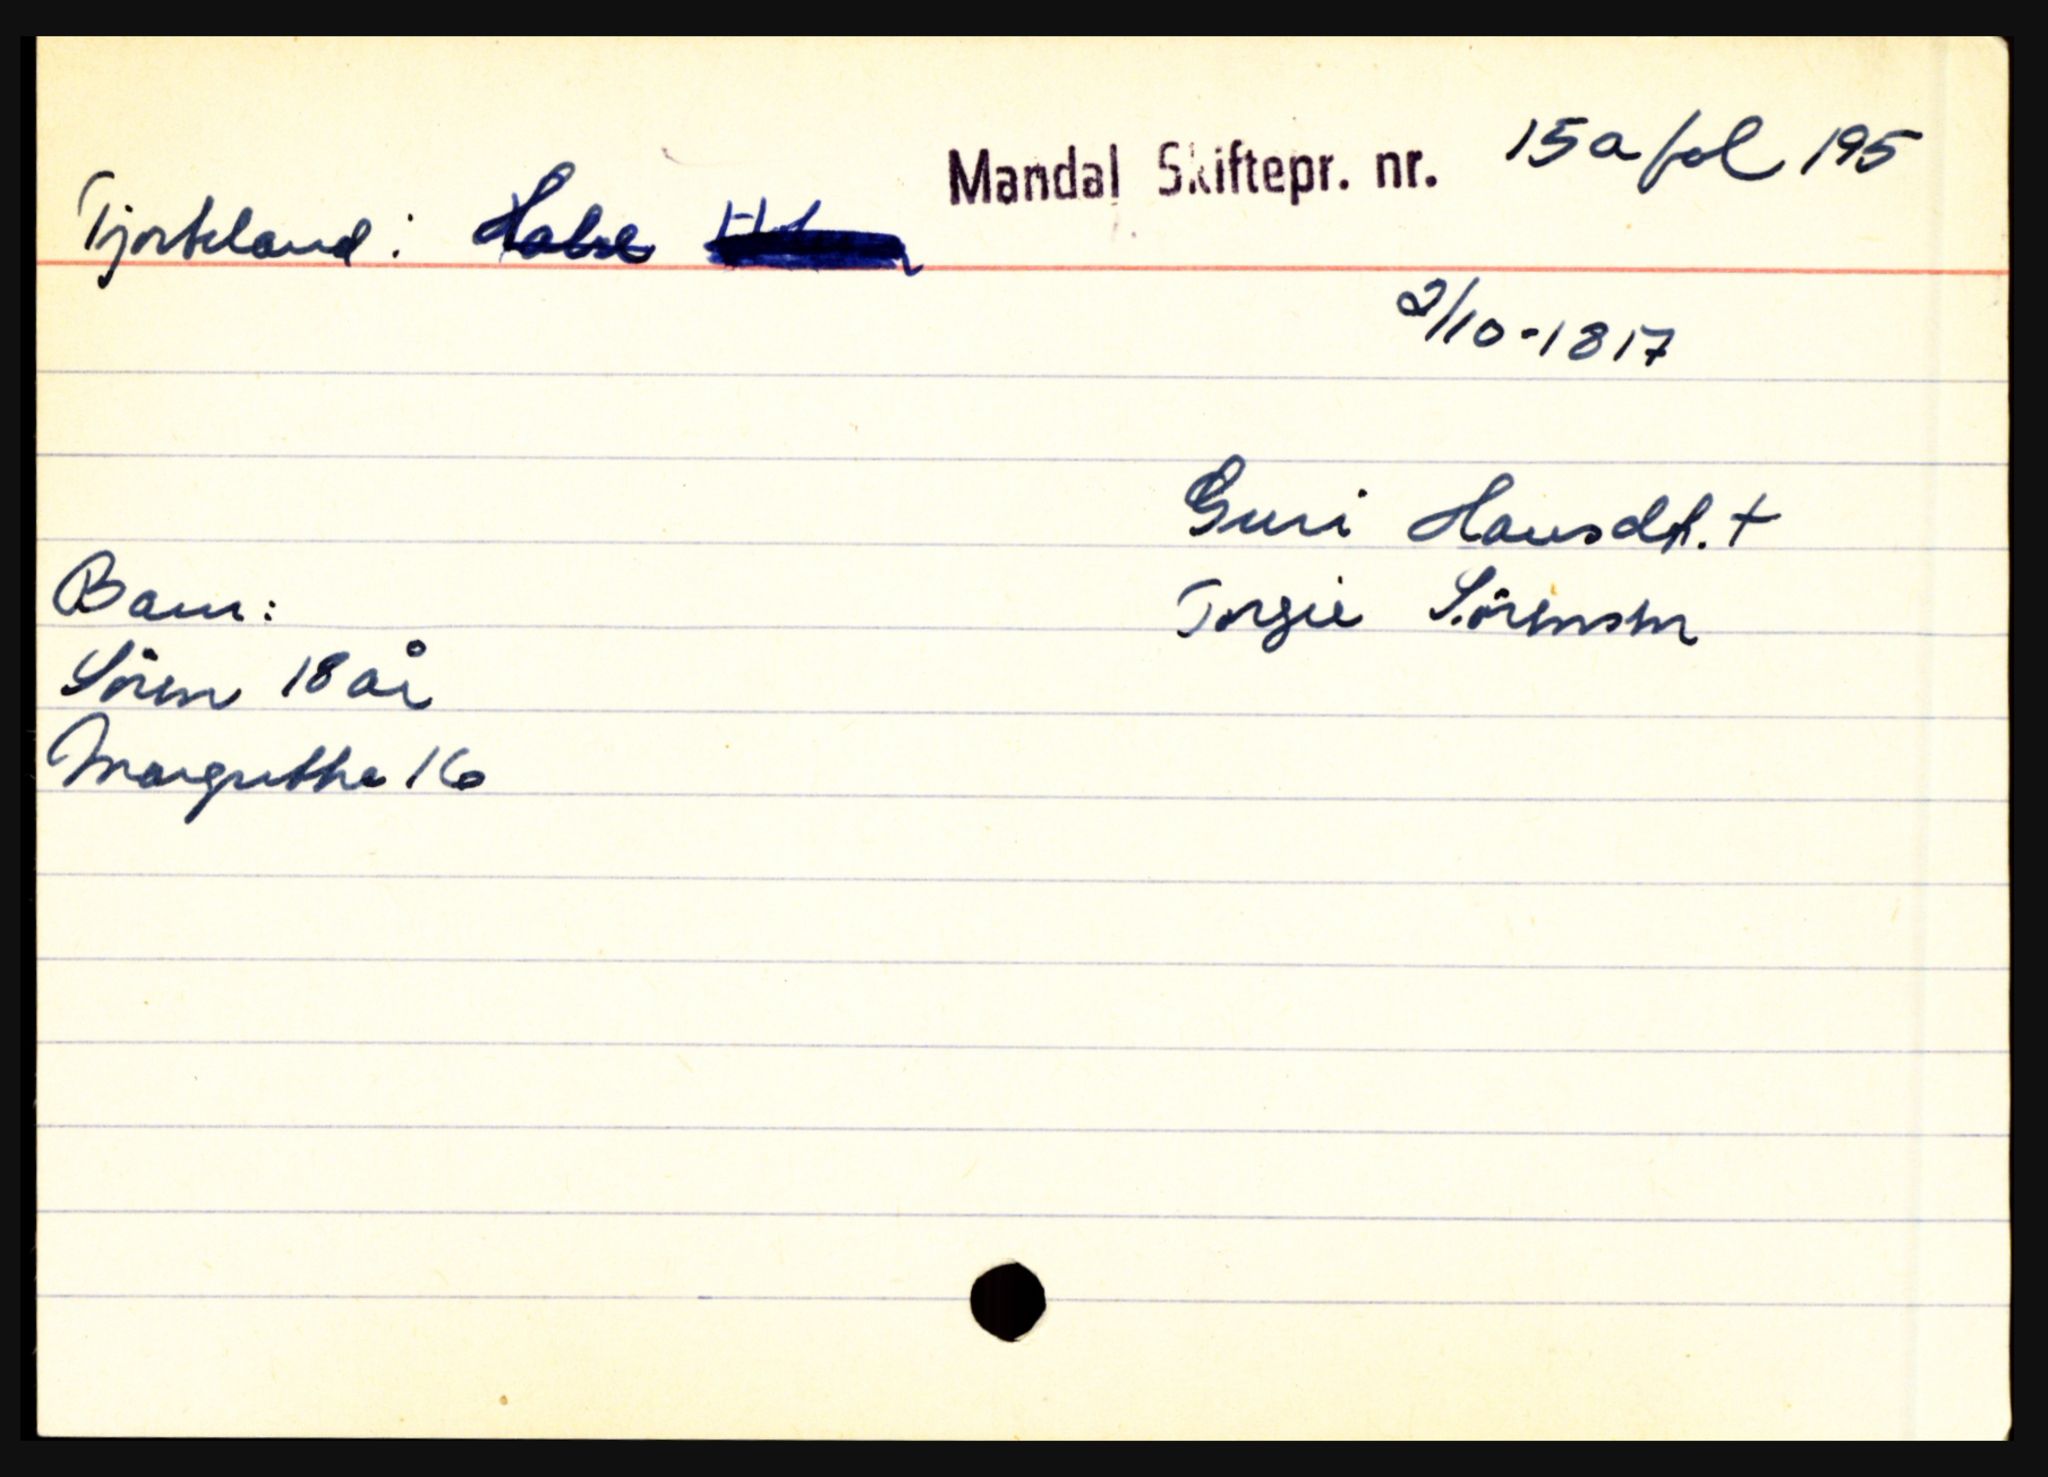 Mandal Skiftepr. nr. 15a fol 195
Tjorteland: Halse
2/10-1817
Guri Hansdt. +
Barn:
Torgie Sörensen
Sören 18 år
Margrethe 16